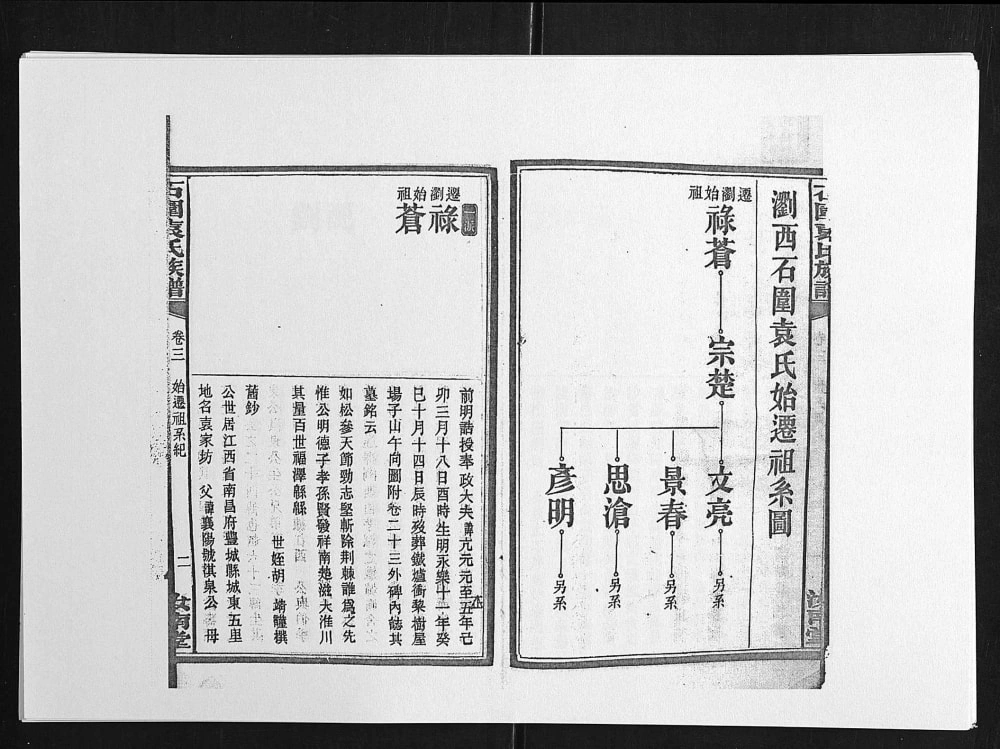 瀏西石圍袁氏始遷祖系圖
遷瀏始祖
祿蒼
宗楚
文亮
另系
景春
另系
思滄
另系
彥明
另系
一派
遷瀏始祖
祿蒼
前明誥授奉政大夫諱亢元元至五年乙
卯三月十八日酉時生明永樂十一年癸
巳十月十四日辰時歿葬鐵爐衝黎樹屋
場子山午向圖附卷二十三外碑內誌其
墓銘云
如松參天節勁志堅斬除荆棘誰為之先
惟公明德子孝孫賢發祥南楚滋大淮川
其量百世福澤緜緜 世姪胡 靖髓撰
舊鈔
公世居江西省南昌府豐城縣城東五里
地名袁家坊 父諱襄陽號淇泉公 母
石圍袁氏族譜
卷三
始遷祖系紀
二
汝南堂